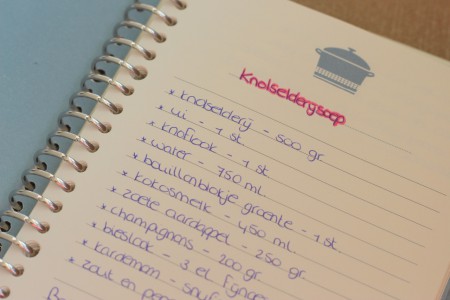 Knolselderijsoep
* knolselderij - 500 gr
* ui - 1 st
* knoflook - 1 st
* water - 750 ml
* bouillonblokje groente - 1 st.
* kokosmelk - 450 ml.
* zoete aardappel - 250 gr.
* champignons - 200 gr.
* bieslook - 3 el fijnge
* kardemom - snuf
* zout en pepe